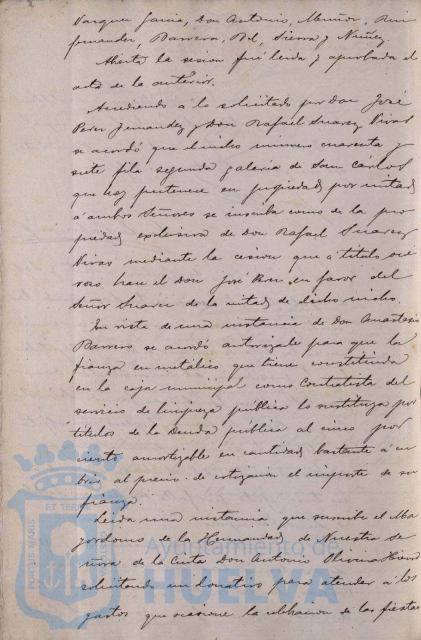 Vazquez Garcia, Don Antonio, Muñoz, Ruiz
Fernandez, Barrera, Bel, Sierra y Nuñez
Abierta la sesion fué leida y aprobada el
acta de la anterior.
Accediendo á lo solicitado por Don José
Perez Fernandez y Don Rafael Suarez Vivas
se acordó que el nicho numero cuarenta y
siete fila segunda galeria de San Cárlos
que hoy pertenece en propiedad por mitad
á ambos Señores se inscriba como de la pro
piedad exclusiva de Don Rafael Suarez
Vivas mediante la cesion que á titulo
hace el Don José Perez en favor del
Señor Suarez de la mitad de dicho nicho.
En vista de una instancia de Don Anastasio
Barrero se acordó autorizarle para que la
fianza en metálico que tiene constituida
en la caja municipal como Contratista del
servicio de limpieza pública la sustituya por
titulos de la Deuda pública al cinco por
ciento amortizable en cantidad bastante á cu
brir al precio de cotizacion el importe de su
fianza.
Leida una instancia que suscribe el Ma
yordomo de la Hermandad de Nuestra Se
ñora de la Cinta Don Antonio Oliveira
solicitando un donativo para atender á los
gastos que ocasione la celebracion de las fiestas
Ayuntamiento de
HUELVA
PORTUS MARIS
ET TERRAE